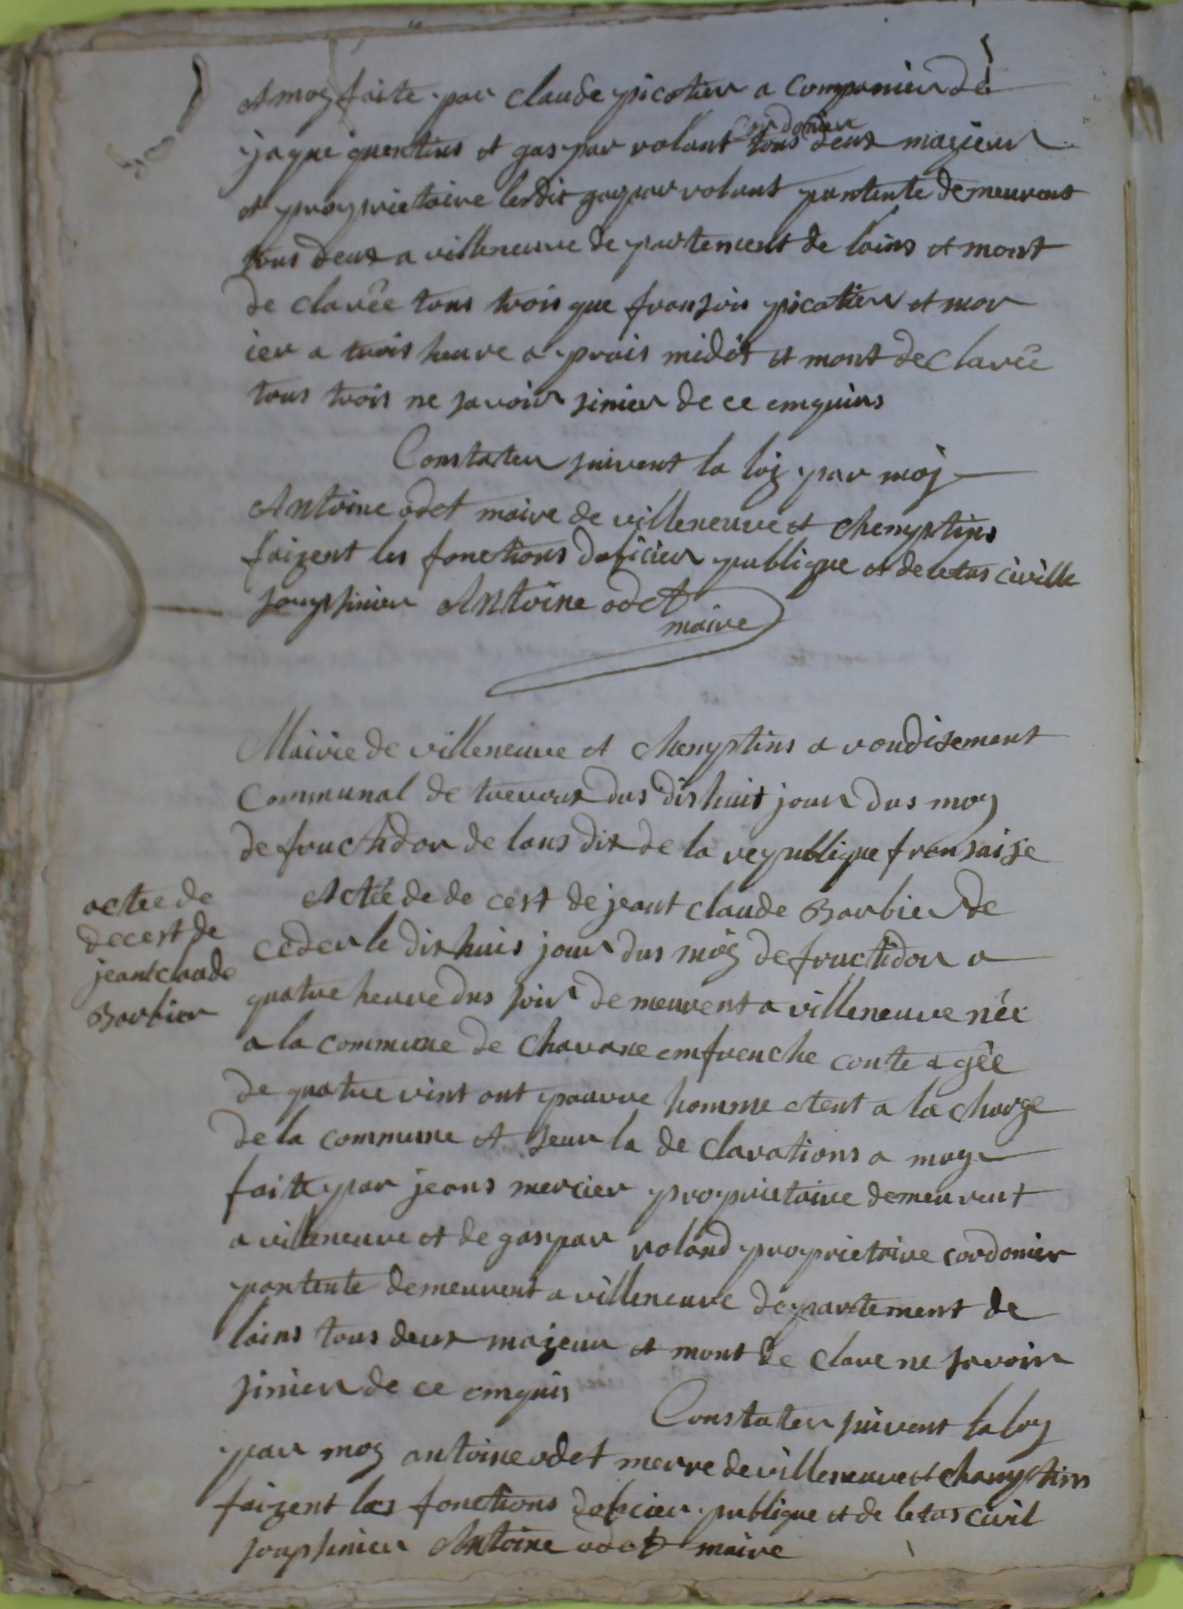 a moy faite par claude picotier a companier dé
jaque quentins et gaspar volant tous deux majeur
cordonier
et proprietaire ledit gaspar volant pantente demeurent
tous deux a villeneuve departement de loins et mont
de clarée tous trois que fransois picotier et mor
ier a trois heure a prais midit et mont de clarée
tous trois ne savoir sinier de ce enquins
Constater suivent la loy par moy
Antoine odet maire de villeneuve et chenptins
faizent les fonctions doficier publique et de letas civille
soupsinier Antoine odet
maire
Mairie de villeneuve et chenptins a rondisement
Communal de trevoux dus dishuit jour dus moy
de fructidor de lans dix de la republique fransaise
actee de
decest de
jean claude
Barbier
Actée de de cest de jeant claude Barbier de
ceder le dishuis jour dus moy de fructidor a
quatre heure dus soir demeurent a villeneuve née
a la commune de chavane enfrenche conte agée
de quatre vint ont pauvre homme etent a la charge
de la commune et seur la de clarations a moy
faite par jeans mercier proprietaire demeurent
a villeneuve et de gaspar roland proprietaire cordonier
pantente demeurent a villeneuve departement de
loins tous deux majeur et mont de clare ne savoir
sinier de ce enquis
Constater suivent la loy
par moy antoine odet merre de villeneuve et chanptins
faizent les fonctions doficier publique et de letas civil
soupsinier Antoine odet maire